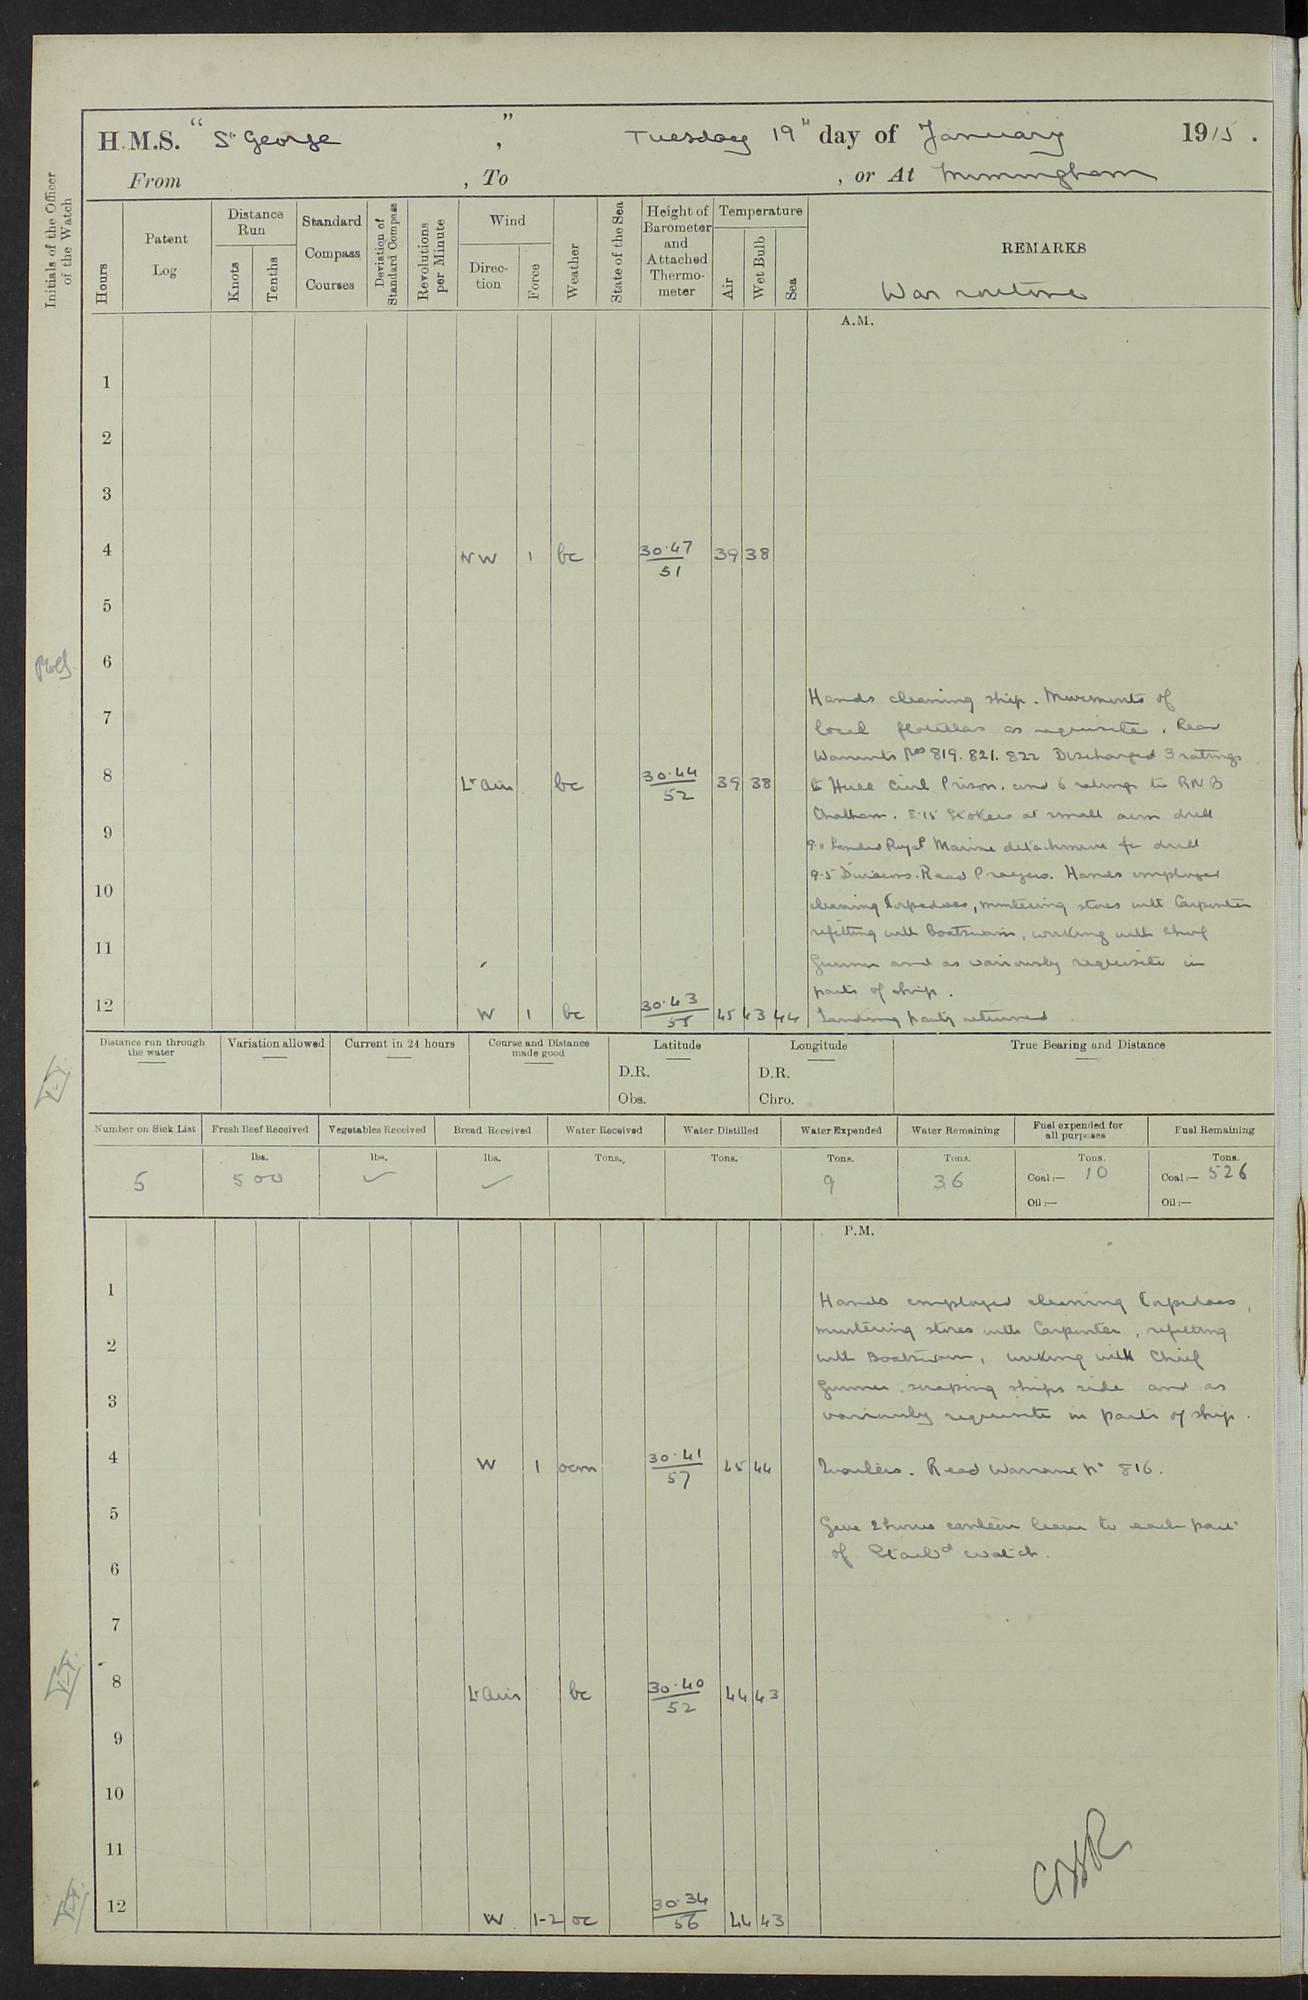 H.M.S. "St George", Tuesday 19th day of January 1915.
From , To , or At Immingham
Initials of the Officer of the Watch
Hours
Patent Log
Distance Run
Knots
Tenths
Standard Compass Courses
Deviation of Standard Compass
Revolutions per Minute
Wind
Direction
Force
Weather
State of the Sea
Height of Barometer and Attached Thermometer
Temperature
Air
Wet Bulb
Sea
REMARKS
War routine
A.M.
1
2
3
4 NW 1 bc 30.47/51 39 38
5
6
Hands cleaning ship. Movements of
7
local flotillas as requisite. Read
Warrants Nos 819. 821. 822 Discharged 3 ratings
8 Lt airs bc 30.44/52 39 38
to Hull Civil Prison. and 6 ratings to RNB
Chatham. 8.15 Stokers at small arm drill
9
9.0 Landed Royal Marine detachment for drill
9.5 Divisions. Read Prayers. Hands employed
10
cleaning Torpedoes, mustering stores with Carpenter
refitting with Boatswain, working with Chief
11
Gunner and as variously requisite in
parts of ship.
12 W 1 bc 30.43/55 45 43 44
Landing party returned
Distance run through the water
Variation allowed
Current in 24 hours
Course and Distance made good
Latitude
D.R.
Obs.
Longitude
D.R.
Chro.
True Bearing and Distance
Number on Sick List
Fresh Beef Received
Vegetables Received
Bread Received
Water Received
Water Distilled
Water Expended
Water Remaining
Fuel expended for all purposes
Fuel Remaining
5
lbs. 500
lbs. ✓
lbs. ✓
Tons.
Tons.
Tons. 9
Tons. 36
Tons. Coal:— 10
Oil:—
Tons. Coal:— 526
Oil:—
P.M.
1
Hands employed cleaning Torpedoes,
mustering stores with Carpenter, refitting
2
with Boatswain, working with Chief
Gunner, scraping ships side and as
3
variously requisite in parts of ship.
4 W 1 ocm 30.41/57 45 44
Quarters. Read Warrant No 816.
5
Gave 2 hours canteen leave to each part
of Starbd watch.
6
7
8 Lt airs bc 30.40/52 44 43
9
10
11
12 W 1-2 oc 30.34/56 44 43